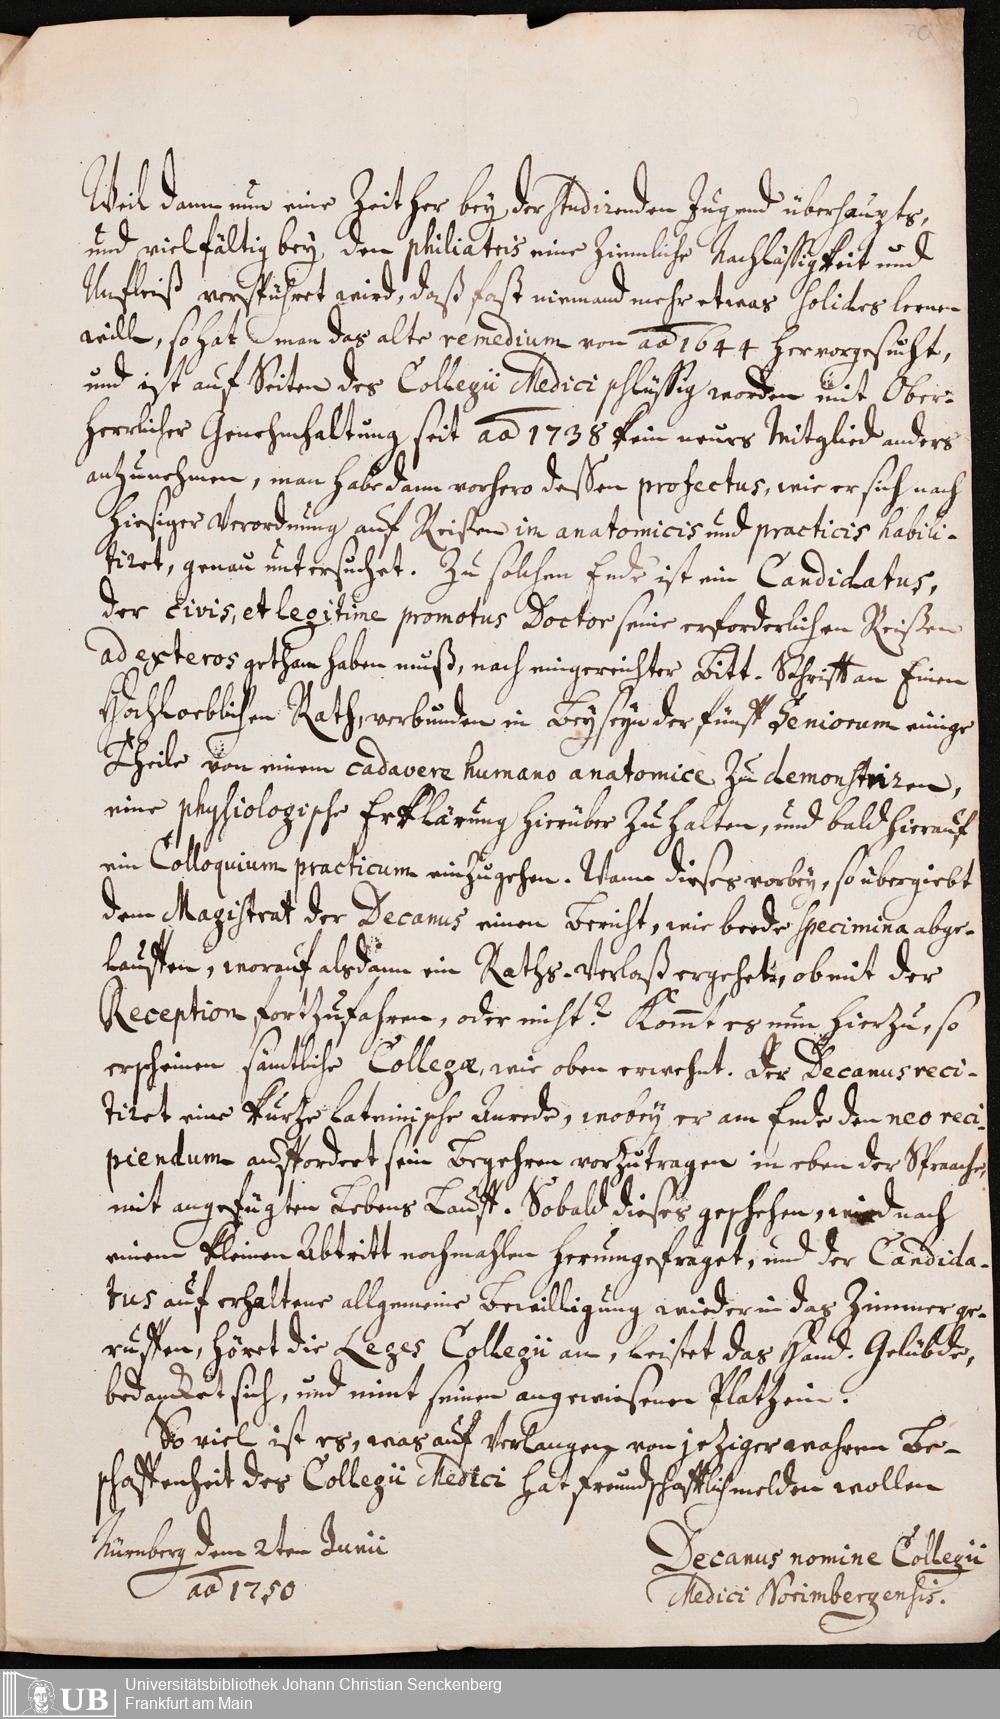 Weil dann nun eine Zeit her bey der studirenden Jugend überhaupts,
und vielfältig bey den philiatris eine zimmliche Nachlässigkeit und
Unfleiß verspühret wird, daß fast niemand mehr etwas solides lernen
will, so hat man das alte remedium von aō 1644 hervorgesucht,
und ist auf Seiten des Collegii Medici schlüssig worden mit Ober-
herrlicher Genehmhaltung seit aō 1738 kein neues Mitglied anders
anzunehmen, man habe dann vorhero dessen profectus, wie er sich nach
hiesiger Verordnung auf Reissen in anatomicis und practicis habili-
tiret, genau untersuchet. Zu solchen Ende ist ein Candidatus,
der civis, et legitime promotus Doctor seine erforderlichen Reissen
ad exteros gethan haben muß, nach eingereichter Bitt-Schrifft an Einen
Hochloeblichen Rath, verbunden in Beyseyn der fünff Seniorum einige
Theile von einem cadavere humano anatomice zu demonstriren,
eine physiologische Erklärung hierüber zu halten, und bald hierauf
ein Colloquium practicum einzugehen. Wann dieses vorbey, so übergiebt
dem Magistrat der Decanus einen Bericht, wie beede specimina abge-
lauffen, worauf alsdann ein Raths-Verlaß ergehet, ob mit der
Reception fortzufahren, oder nicht? Kom̄t es nun hierzu, so
erscheinen sämtliche Collegæ, wie oben erwehnt. Der Decanus reci-
tiret eine kurtze lateinische Anrede, wobey er am Ende den neo reci-
piendum auffordert sein Begehren vorzutragen in eben der Spraache,
mit angefügten Lebens Lauff. Sobald dieses geschehen, wird nach
einem kleinen Abtritt nochmahlen herumgefraget, und der Candida-
tus auf erhaltene allgemeine Bewilligung wieder in das Zimmer ge-
ruffen, höret die Leges Collegii an, leistet das Hand-Gelübde,
bedancket sich, und nimt seinen angewiesenen Platz ein.
So viel ist es, was auf Verlangen von jeziger wahren Be-
schaffenheit des Collegii Medici hat freundschafftlich melden wollen
Nürnberg dem 2ten Junii
aō 1750
Decanus nomine Collegii
Medici Norimbergensis.
UB
Universitätsbibliothek Johann Christian Senckenberg
Frankfurt am Main